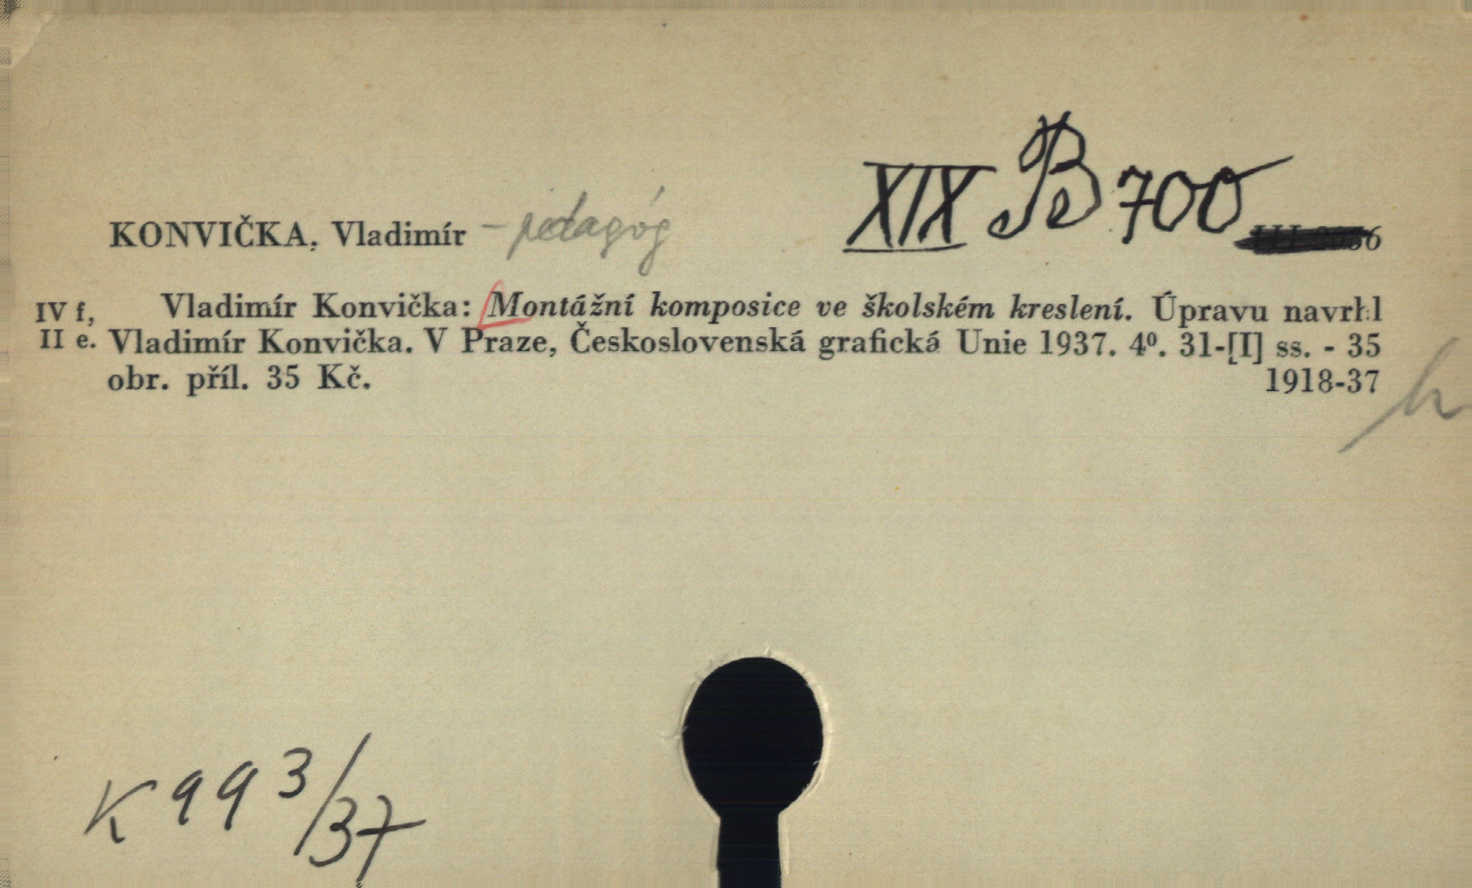 XIX B 700
KONVIČKA, Vladimír – pedagóg
IV f, Vladimír Konvička: Montážní komposice ve školském kreslení. Úpravu navrhl
II e. Vladimír Konvička. V Praze, Československá grafická Unie 1937. 4⁰. 31-[I] ss. - 35
obr. příl. 35 Kč. 1918-37
K 993/37